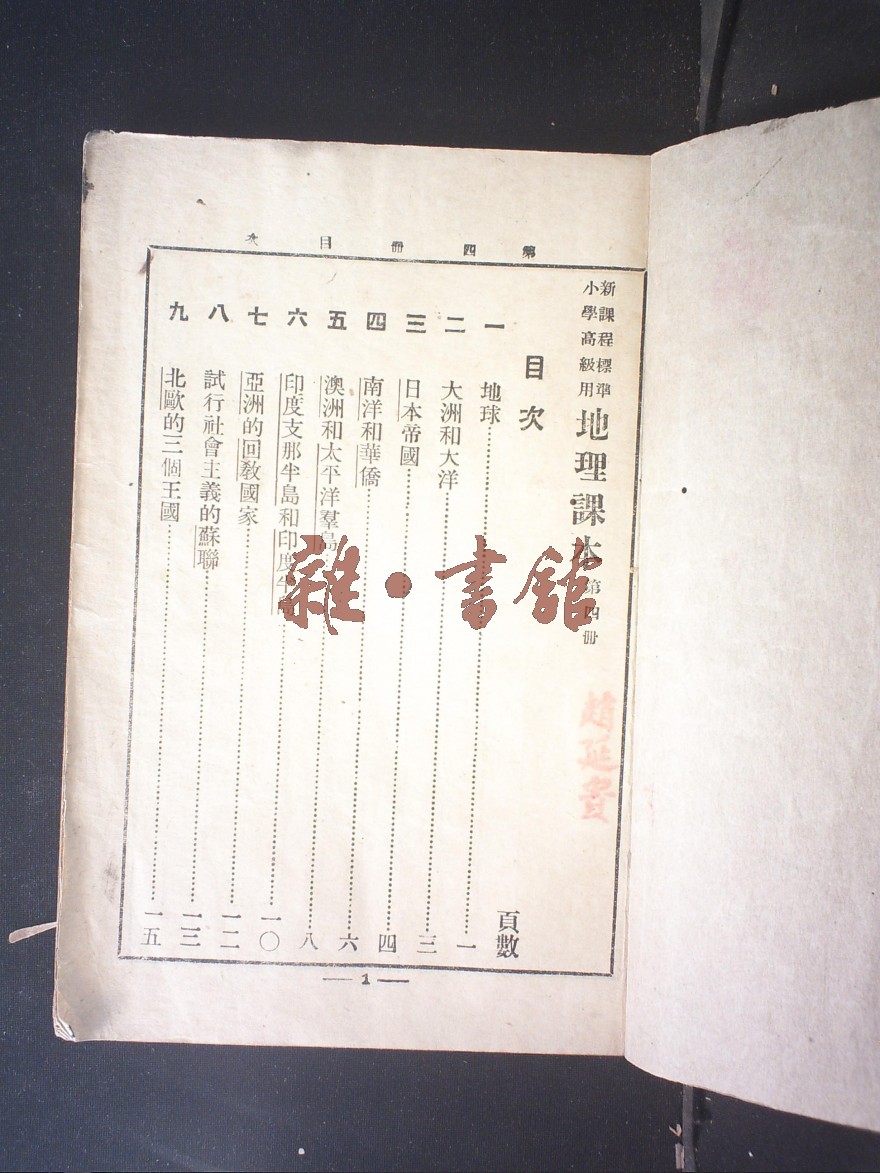 第四冊目次
新課程標準
小學高級用
地理課本 第四冊
目次
頁數
一 地球 一
二 大洲和大洋 三
三 日本帝國 四
四 南洋和華僑 六
五 澳洲和太平洋羣島 八
六 印度支那半島和印度半島 一〇
七 亞洲的回教國家 一二
八 試行社會主義的蘇聯 一三
九 北歐的三個王國 一五
— 1 —
雜·書館